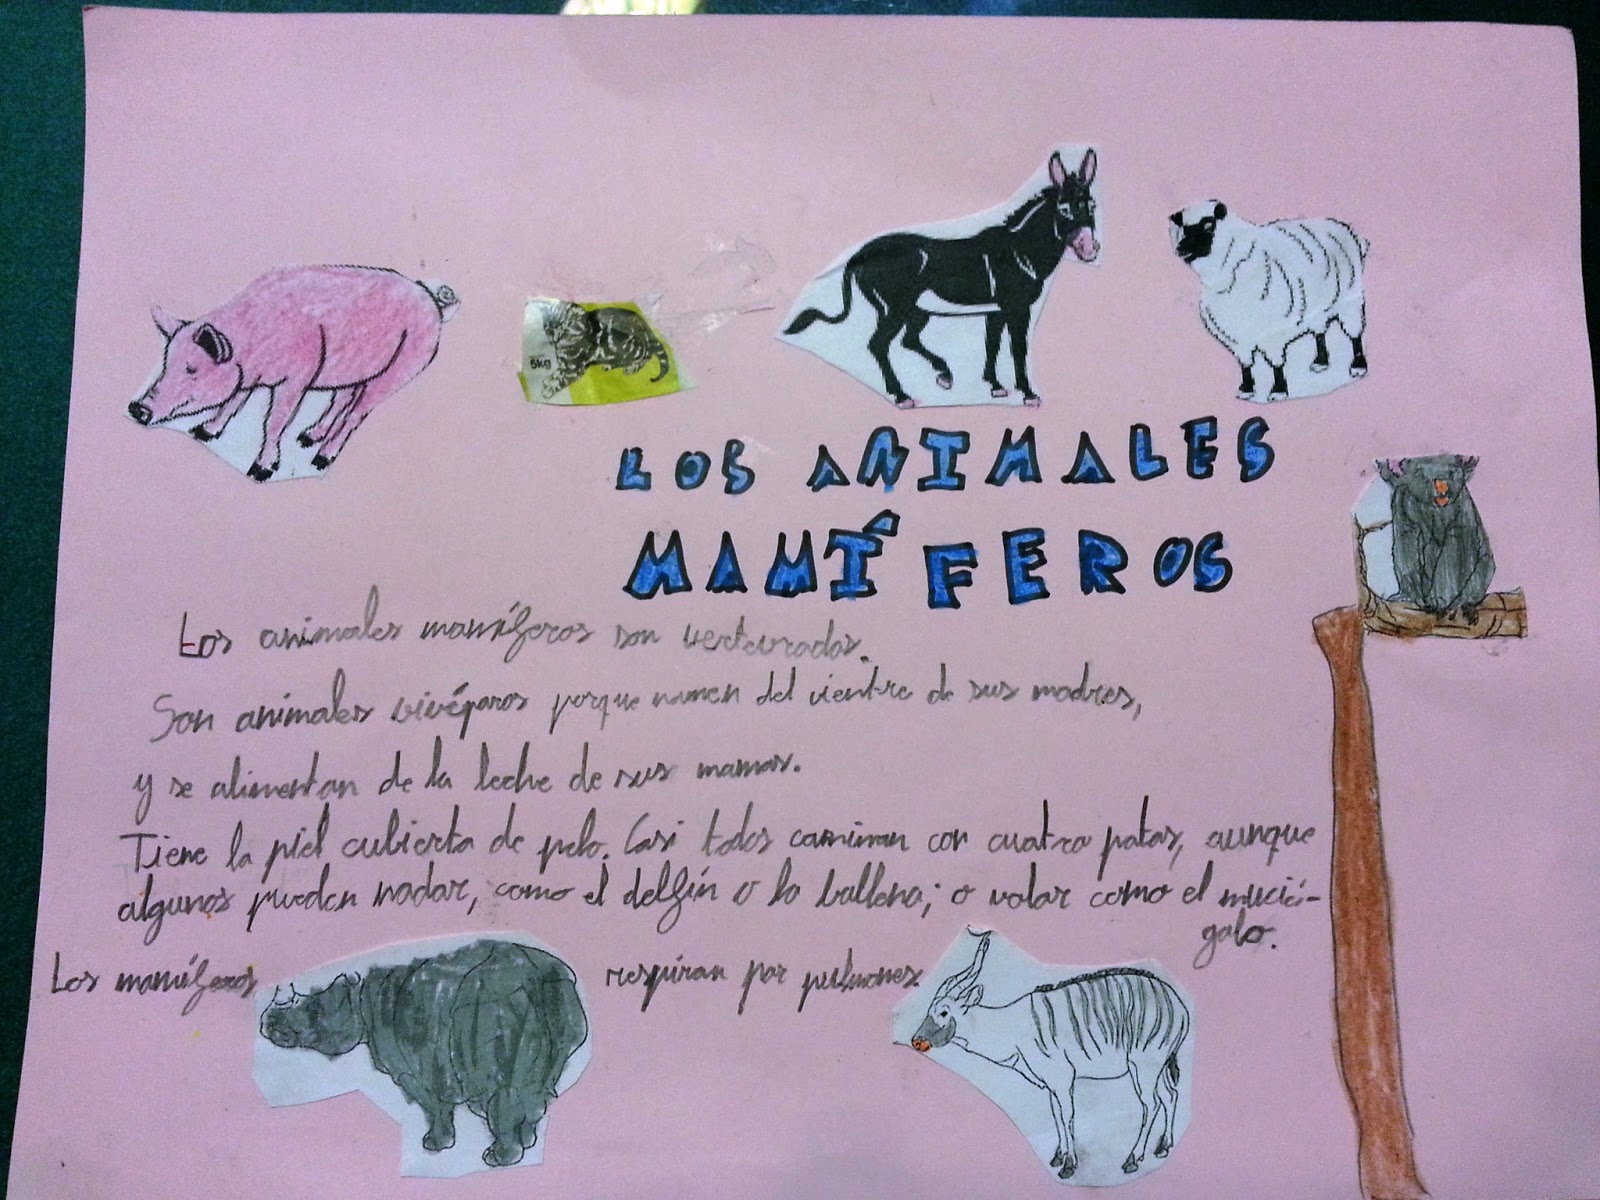 5kg
LOS ANIMALES
MAMÍFEROS
Los animales mamíferos son verteurados.
Son animales vivéparos porque nancen del vientre de sus madres,
y se alimentan de la leche de sus mamas.
Tiene la piel cubierta de pelo. Casi todos caminan con cuatro patas, aunque
algunos pueden nadar, como el delfín o la ballena; o volar como el mucié-
galo.
Los mamíferos respiran por pulmones.